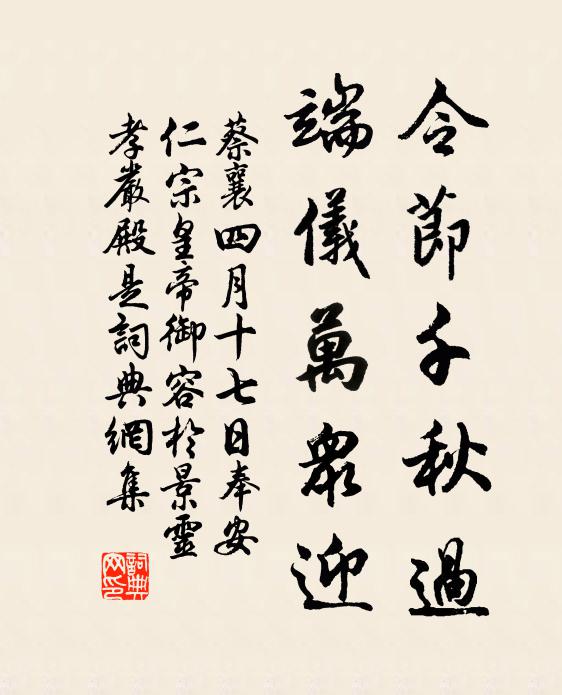 令節千秋過
端儀萬衆迎
蔡襄四月十七日奉安
仁宗皇帝御容於景靈
孝嚴殿是詞典網集
詞典网印